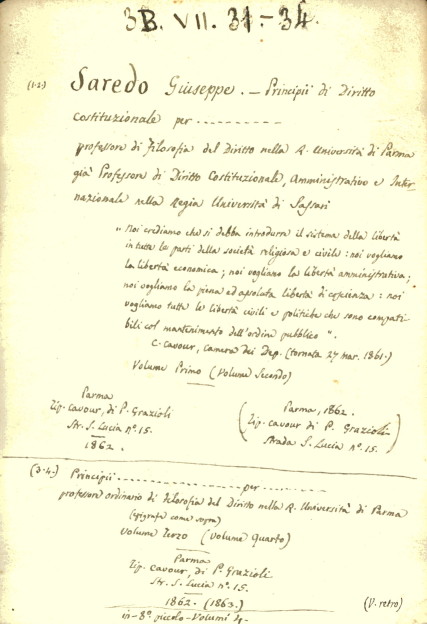 3B. VII. 31-34.
(1-2.) Saredo Giuseppe. — Principii di Diritto
Costituzionale per ----------
professore di Filosofia del Diritto nella R. Università di Parma
già Professore di Diritto Costituzionale, Amministrativo e Inter-
nazionale nella Regia Università di Sassari
" Noi crediamo che si debba introdurre il sistema della libertà
in tutte le parti della società religiosa e civile: noi vogliamo
la libertà economica; noi vogliamo la libertà amministrativa;
noi vogliamo la piena ed assoluta libertà di coscienza: noi
vogliamo tutte le libertà civili e politiche che sono compati-
bili col mantenimento dell'ordine pubblico ".
C. Cavour, Camera dei Dep. (tornata 27 Mar. 1861.)
Volume Primo (Volume Secondo)
Parma
Tip. Cavour, di P. Grazioli
Str. S. Lucia nº. 15.
1862.
(Parma, 1862.
Tip. Cavour di P. Grazioli
Strada S. Lucia nº. 15.)
(3-4.) Principii --------------- per ----------
professore ordinario di Filosofia del Diritto nella R. Università di Parma
(epigrafe come sopra)
Volume Terzo (Volume Quarto)
Parma
Tip. Cavour, di P. Grazioli
Str. S. Lucia nº. 15.
1862. (1863.)
in-8º. piccolo-Volumi 4.
(V. retro)